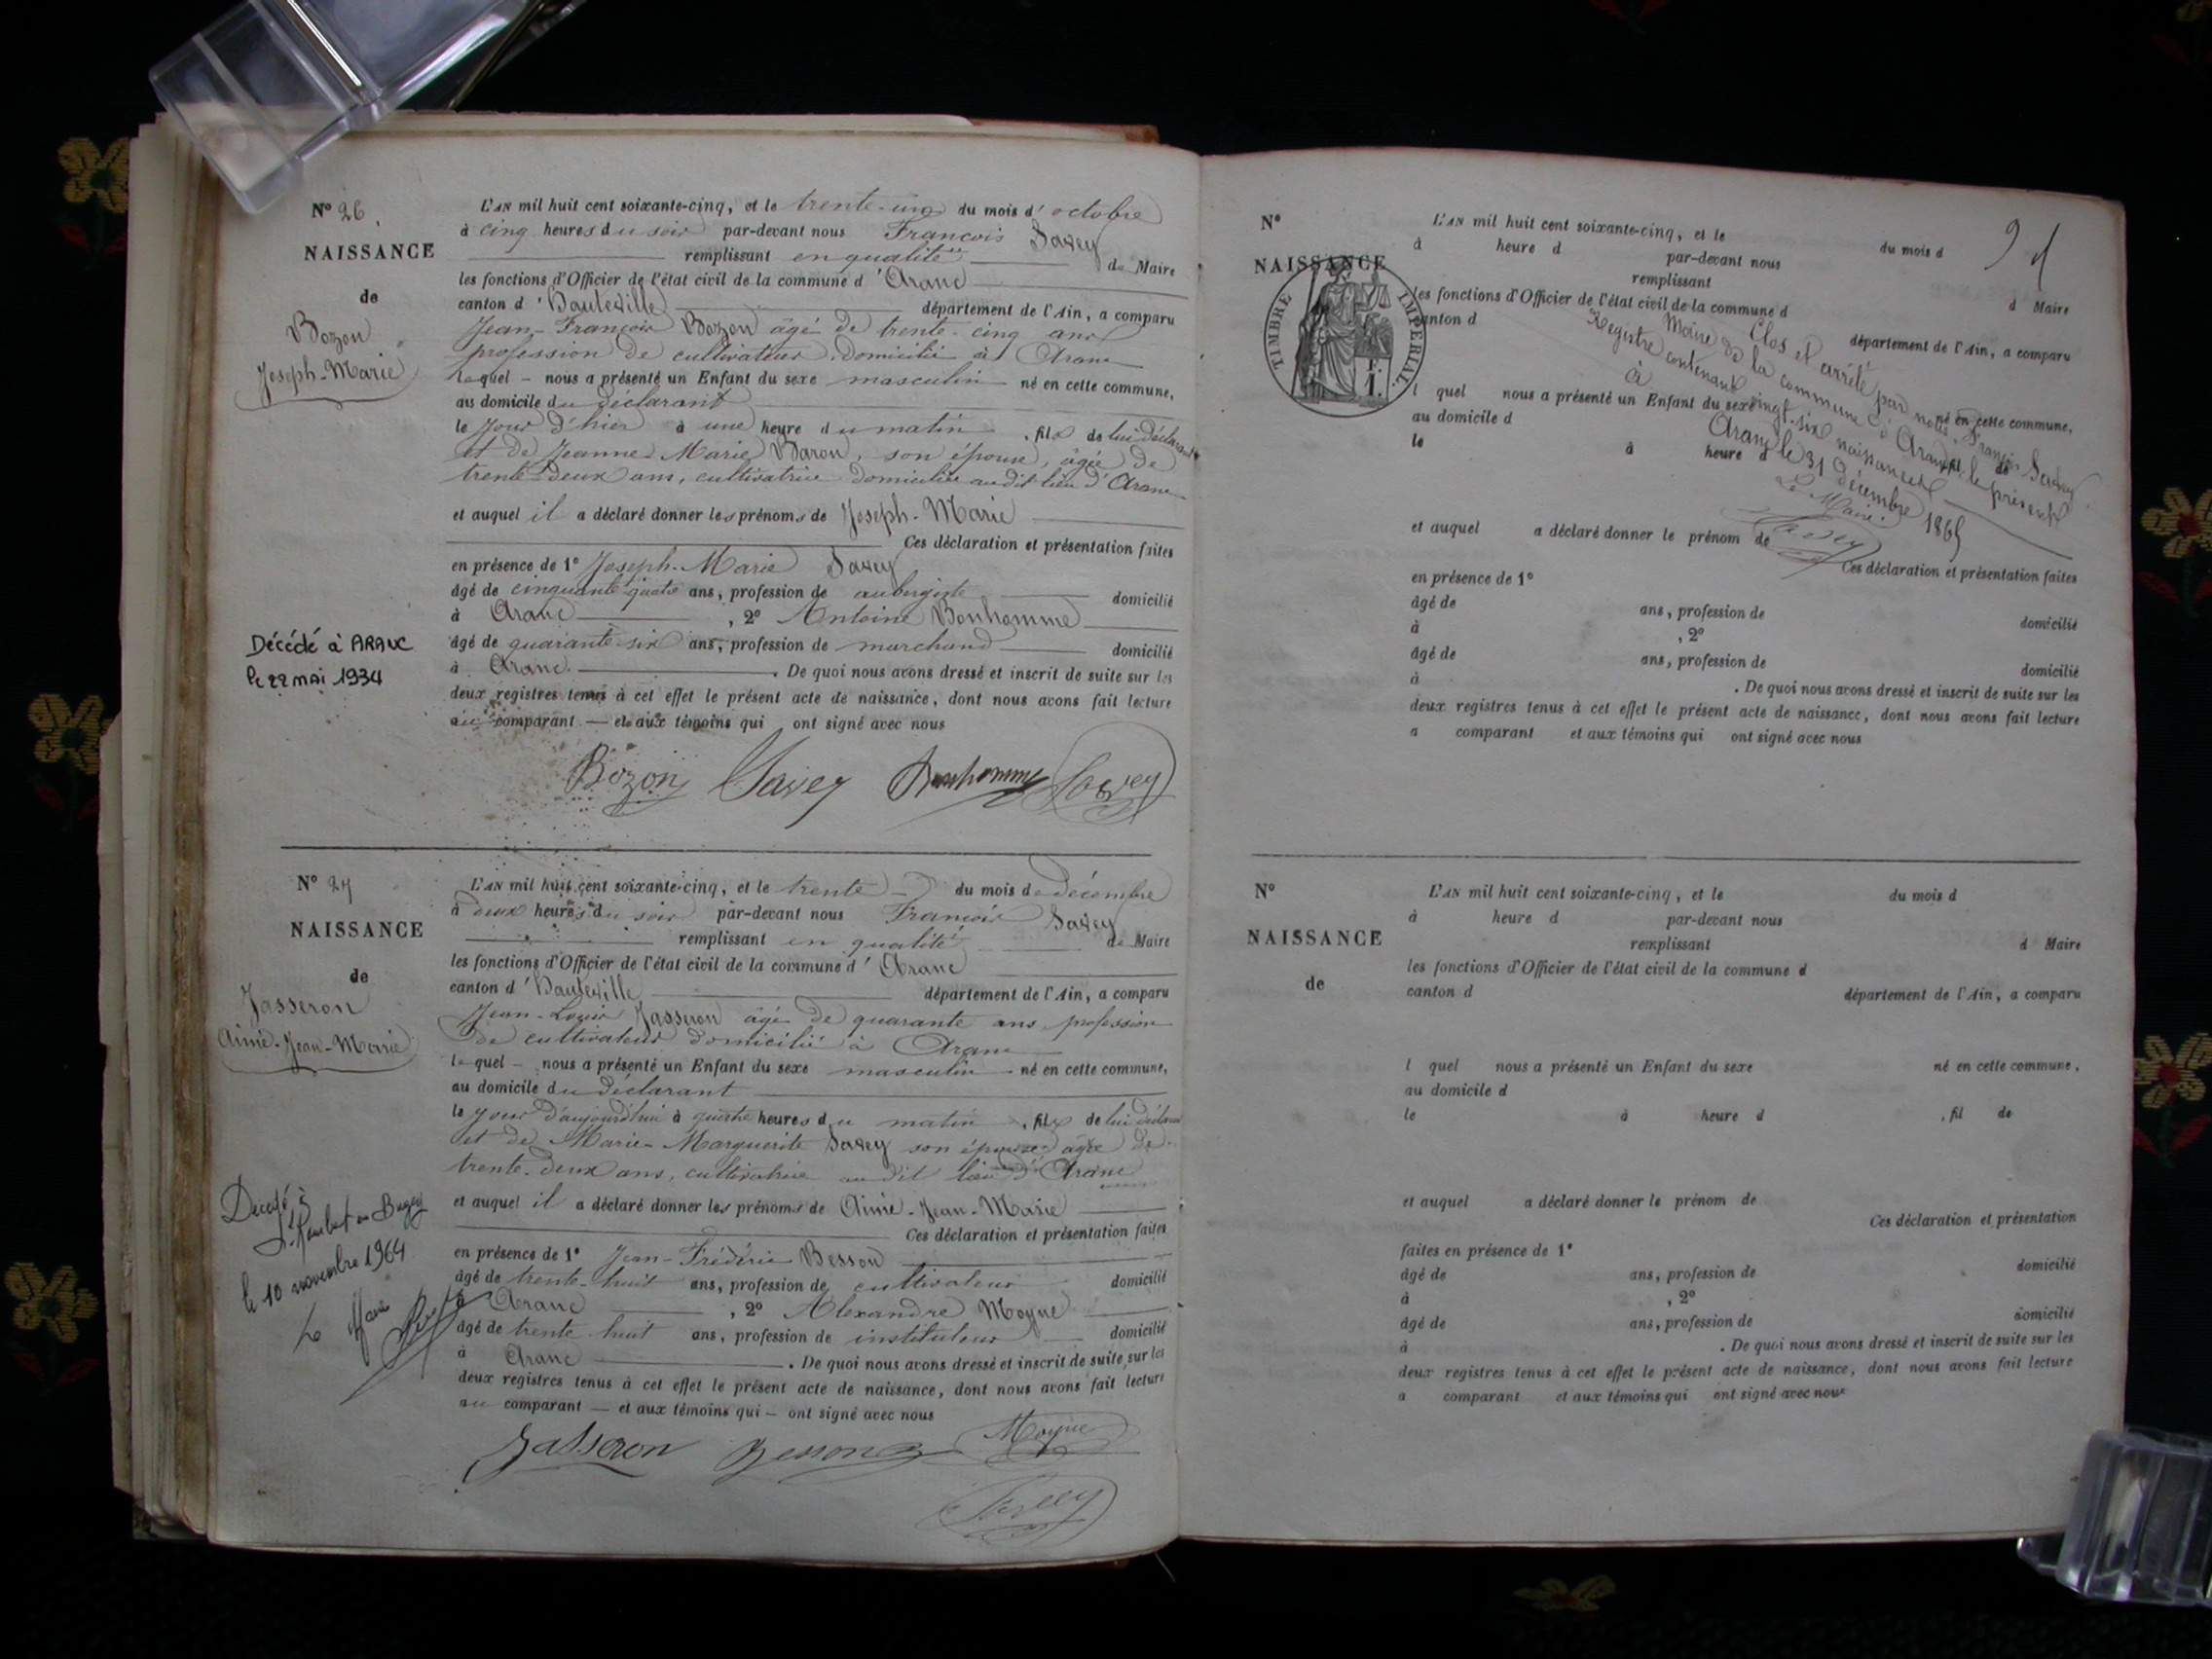 N° 26
NAISSANCE
de
Bozon
Joseph-Marie
Décédé à ARANC
le 22 mai 1934
L'AN mil huit cent soixante-cinq, et le trente-un du mois d'octobre
à cinq heures du soir par-devant nous François Savey
remplissant en qualité de Maire
les fonctions d'Officier de l'état civil de la commune d'Aranc
canton d'Hauteville département de l'Ain, a comparu
Jean-François Bozon âgé de trente-cinq ans
profession de cultivateur, domicilié à Aranc
lequel - nous a présenté un Enfant du sexe masculin né en cette commune,
au domicile du déclarant
le jour d'hier à une heure du matin, fils de lui déclarant
et de Jeanne Marie Baron, son épouse, âgée de
trente-deux ans, cultivatrice domiciliée audit lieu d'Aranc
et auquel il a déclaré donner les prénoms de Joseph-Marie
Ces déclaration et présentation faites
en présence de 1° Joseph-Marie Savey
âgé de cinquante quatre ans, profession de aubergiste domicilié
à Aranc, 2° Antoine Bonhomme
âgé de quarante-six ans, profession de marchand domicilié
à Aranc. De quoi nous avons dressé et inscrit de suite sur les
deux registres tenus à cet effet le présent acte de naissance, dont nous avons fait lecture
au comparant — et aux témoins qui ont signé avec nous
Bozon Savey Bonhomme Savey
N° 27
NAISSANCE
de
Jasseron
Aimé-Jean-Marie
Décédé à
St Rambert en Bugey
le 10 novembre 1964
Le Maire
L'AN mil huit cent soixante-cinq, et le trente du mois de décembre
à deux heures du soir par-devant nous François Savey
remplissant en qualité de Maire
les fonctions d'Officier de l'état civil de la commune d'Aranc
canton d'Hauteville département de l'Ain, a comparu
Jean-Louis Jasseron âgé de quarante ans profession
de cultivateur domicilié à Aranc
lequel - nous a présenté un Enfant du sexe masculin né en cette commune,
au domicile du déclarant
le jour d'aujourd'hui à quatre heures du matin, fils de lui déclarant
et de Marie-Marguerite Savey son épouse âgée de
trente-deux ans, cultivatrice audit lieu d'Aranc
et auquel il a déclaré donner les prénoms de Aimé-Jean-Marie
Ces déclaration et présentation faites
en présence de 1° Jean-Frédéric Besson
âgé de trente-huit ans, profession de cultivateur domicilié
à Aranc, 2° Alexandre Moyne
âgé de trente huit ans, profession de instituteur domicilié
à Aranc. De quoi nous avons dressé et inscrit de suite sur les
deux registres tenus à cet effet le présent acte de naissance, dont nous avons fait lecture
au comparant — et aux témoins qui — ont signé avec nous
Jasseron Besson Moyne
Savey
N°
NAISSANCE
TIMBRE IMPÉRIAL
F.
1.
L'AN mil huit cent soixante-cinq, et le du mois d
à heure d par-devant nous
remplissant d Maire
les fonctions d'Officier de l'état civil de la commune d
canton d département de l'Ain, a comparu
Clos et arrêté par nous, François Savey
Maire de la commune d'Aranc, le présent
Registre contenant vingt-six naissances
à Aranc le 31 décembre 1865
Le Maire
Savey
l quel nous a présenté un Enfant du sexe né en cette commune,
au domicile d
le à heure d
et auquel a déclaré donner le prénom de
Ces déclaration et présentation faites
en présence de 1°
âgé de ans, profession de domicilié
à , 2°
âgé de ans, profession de domicilié
à . De quoi nous avons dressé et inscrit de suite sur les
deux registres tenus à cet effet le présent acte de naissance, dont nous avons fait lecture
a comparant et aux témoins qui ont signé avec nous
N°
NAISSANCE
de
L'AN mil huit cent soixante-cinq, et le du mois d
à heure d par-devant nous
remplissant d Maire
les fonctions d'Officier de l'état civil de la commune d
canton d département de l'Ain, a comparu
l quel nous a présenté un Enfant du sexe né en cette commune,
au domicile d
le à heure d , fil de
et auquel a déclaré donner le prénom de
Ces déclaration et présentation
faites en présence de 1°
âgé de ans, profession de domicilié
à , 2°
âgé de ans, profession de domicilié
à . De quoi nous avons dressé et inscrit de suite sur les
deux registres tenus à cet effet le présent acte de naissance, dont nous avons fait lecture
a comparant et aux témoins qui ont signé avec nous